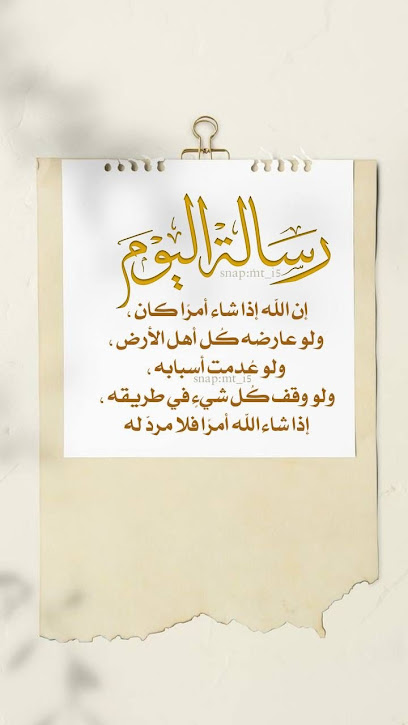 رسالة اليوم
snap:mt_15
إن الله إذا شاء أمرًا كان ،
ولو عارضه كُل أهل الأرض ،
ولو عُدمت أسبابه ،
snap:mt_15
ولو وقف كُل شيءٍ في طريقه ،
إذا شاء الله أمرًا فلا مردّ له